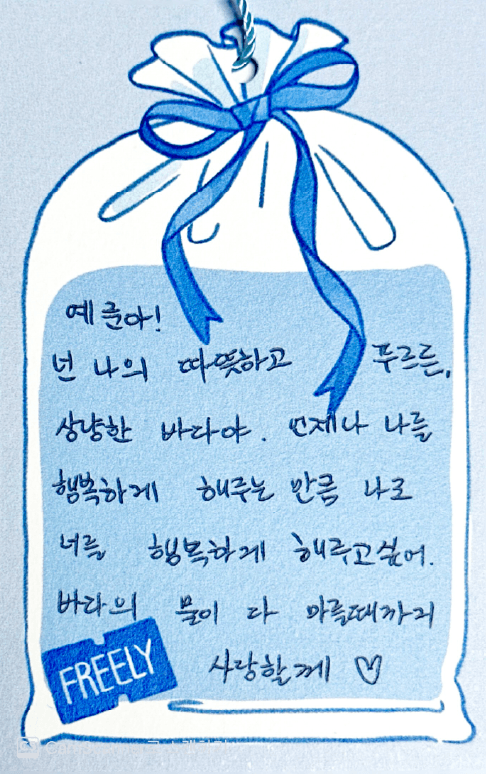 예준아!
넌 나의 따뜻하고 푸르른,
상냥한 바다야. 언제나 나를
행복하게 해주는 만큼 나도
너를 행복하게 해주고싶어.
바다의 물이 다 마를때까지
FREELY 사랑할께 ♡